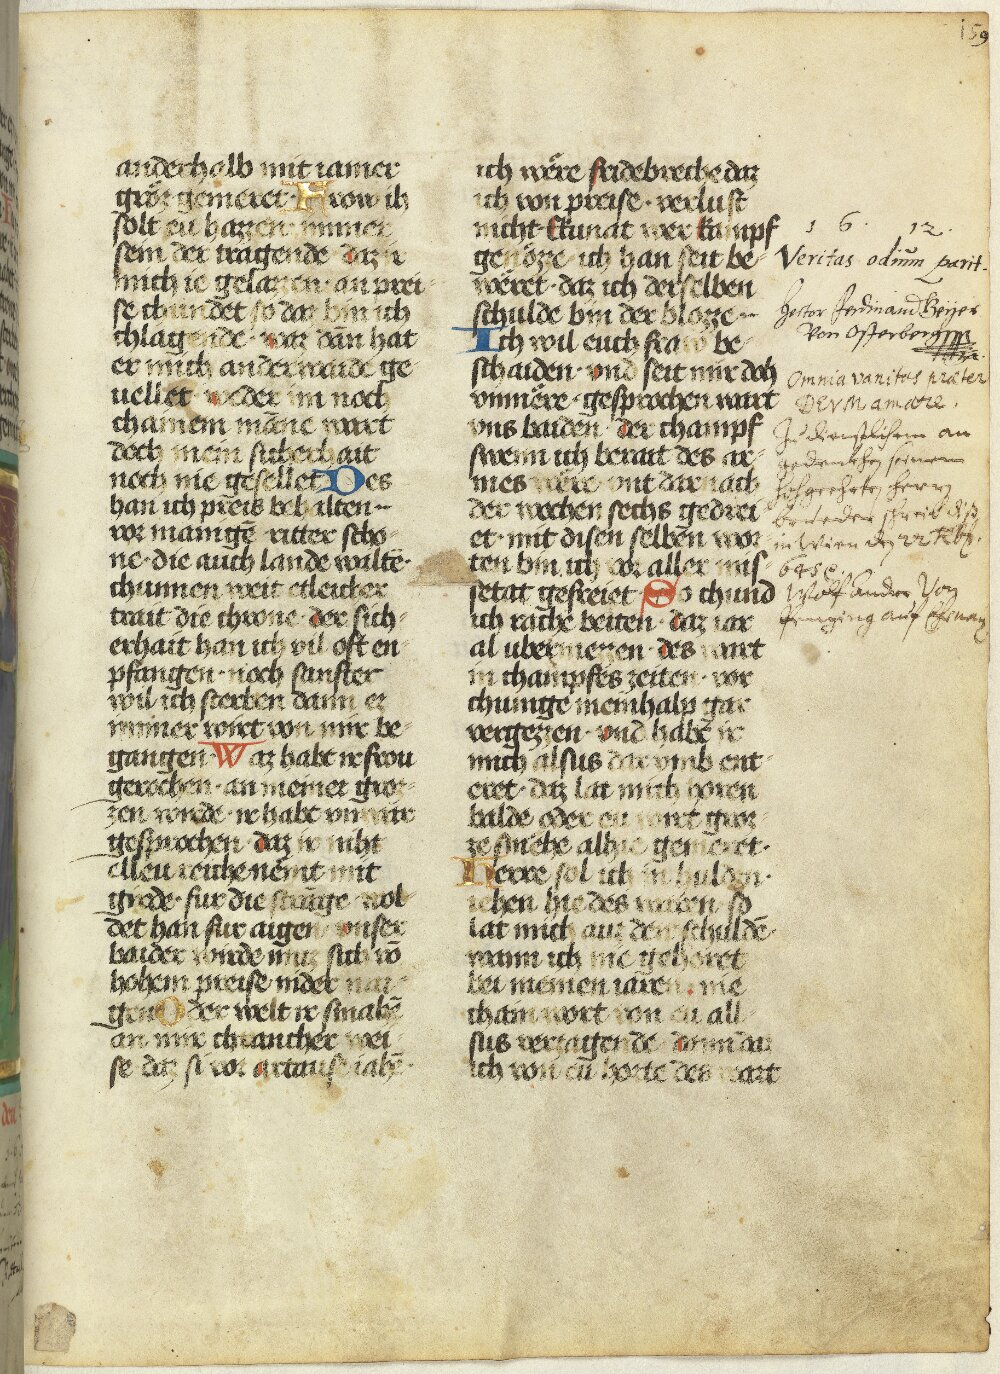 159
anderhalb mit iamer
gröz gemeret· Frow ih
solt eu hazzen· nimer
sein der tragende· daz ir
mich ie gelazzen· an prei-
se chundet so daz bin ich
chlagende· waz dann hat
er mich anderwaide ge
uellet· weder im noch
chainem manne wart
doch mein sicherhait
noch nie gesellet Des
han ich preis behalten··
vor manigē ritter scho-
ne· die auch lande wiltē-
chunnen weit etleicher
trait die chrone· der sich-
erhait han ich vil oft en-
pfangen· noch sanfter
wil ich sterben dann er
nimer wirt von mir be-
gangen· Waz habt ir frou
gerochen· an meiner groz-
zen wirde· ir habt vnwar
gesprochen· daz ir niht
elleu reiche nemt mit
girde· fur die
det han fur augen· vnser
baider wirde muz sich vō
hohem preise nider nai-
gen Oder welt ir smahē
an mir chrancher wei-
se daz si vor artause iahē·
ich wëre fridebreche daz
ich von preise· verlust
nicht· Ekunat wer kampf
genözze· ich han seit be-
wëret· daz ich derselben
schulde bin der blozze··
Ich wil euch fraw be-
schaiden· vnd seit mir doh
vnmëre· gesprochen wart
vns baiden· der champf
swenn ich berait des ar-
mes wëre· vnt dar nach
der wochen sechs gedrei
et· mit disen selben wor-
ten bin ich vor aller mis-
setat gefreiet· So chund
ich rache beiten· daz iar
al ubermezzen· des wart
in champfes zeiten· vor
chunige meinhalp gar
vergezzen· vnd habt ir
mich alsus dar vmb ent-
eret· daz lat mich horen
balde oder eu wirt groz-
ze smëhe alhie gemeret·
Herre sol ich in hulden·
iehen hie des waren· so
lat mich auz den schuldē·
wann ich nie gehoret
bei meinen iaren· nie
chain wort von eu all-
sus verzagende· dann daz
ich von eu horte des wart
1 6 · 12.
Veritas odium parit.
Hector Ferdinand Beijer
Von Osterberg
Omnia vanitas præter
DEVM amare.
Zu dienstlichem an
gedenckhen seinem
hochgeehrten herrn
brueder schreib diß
in Wien den 22
Wolf Andre Von